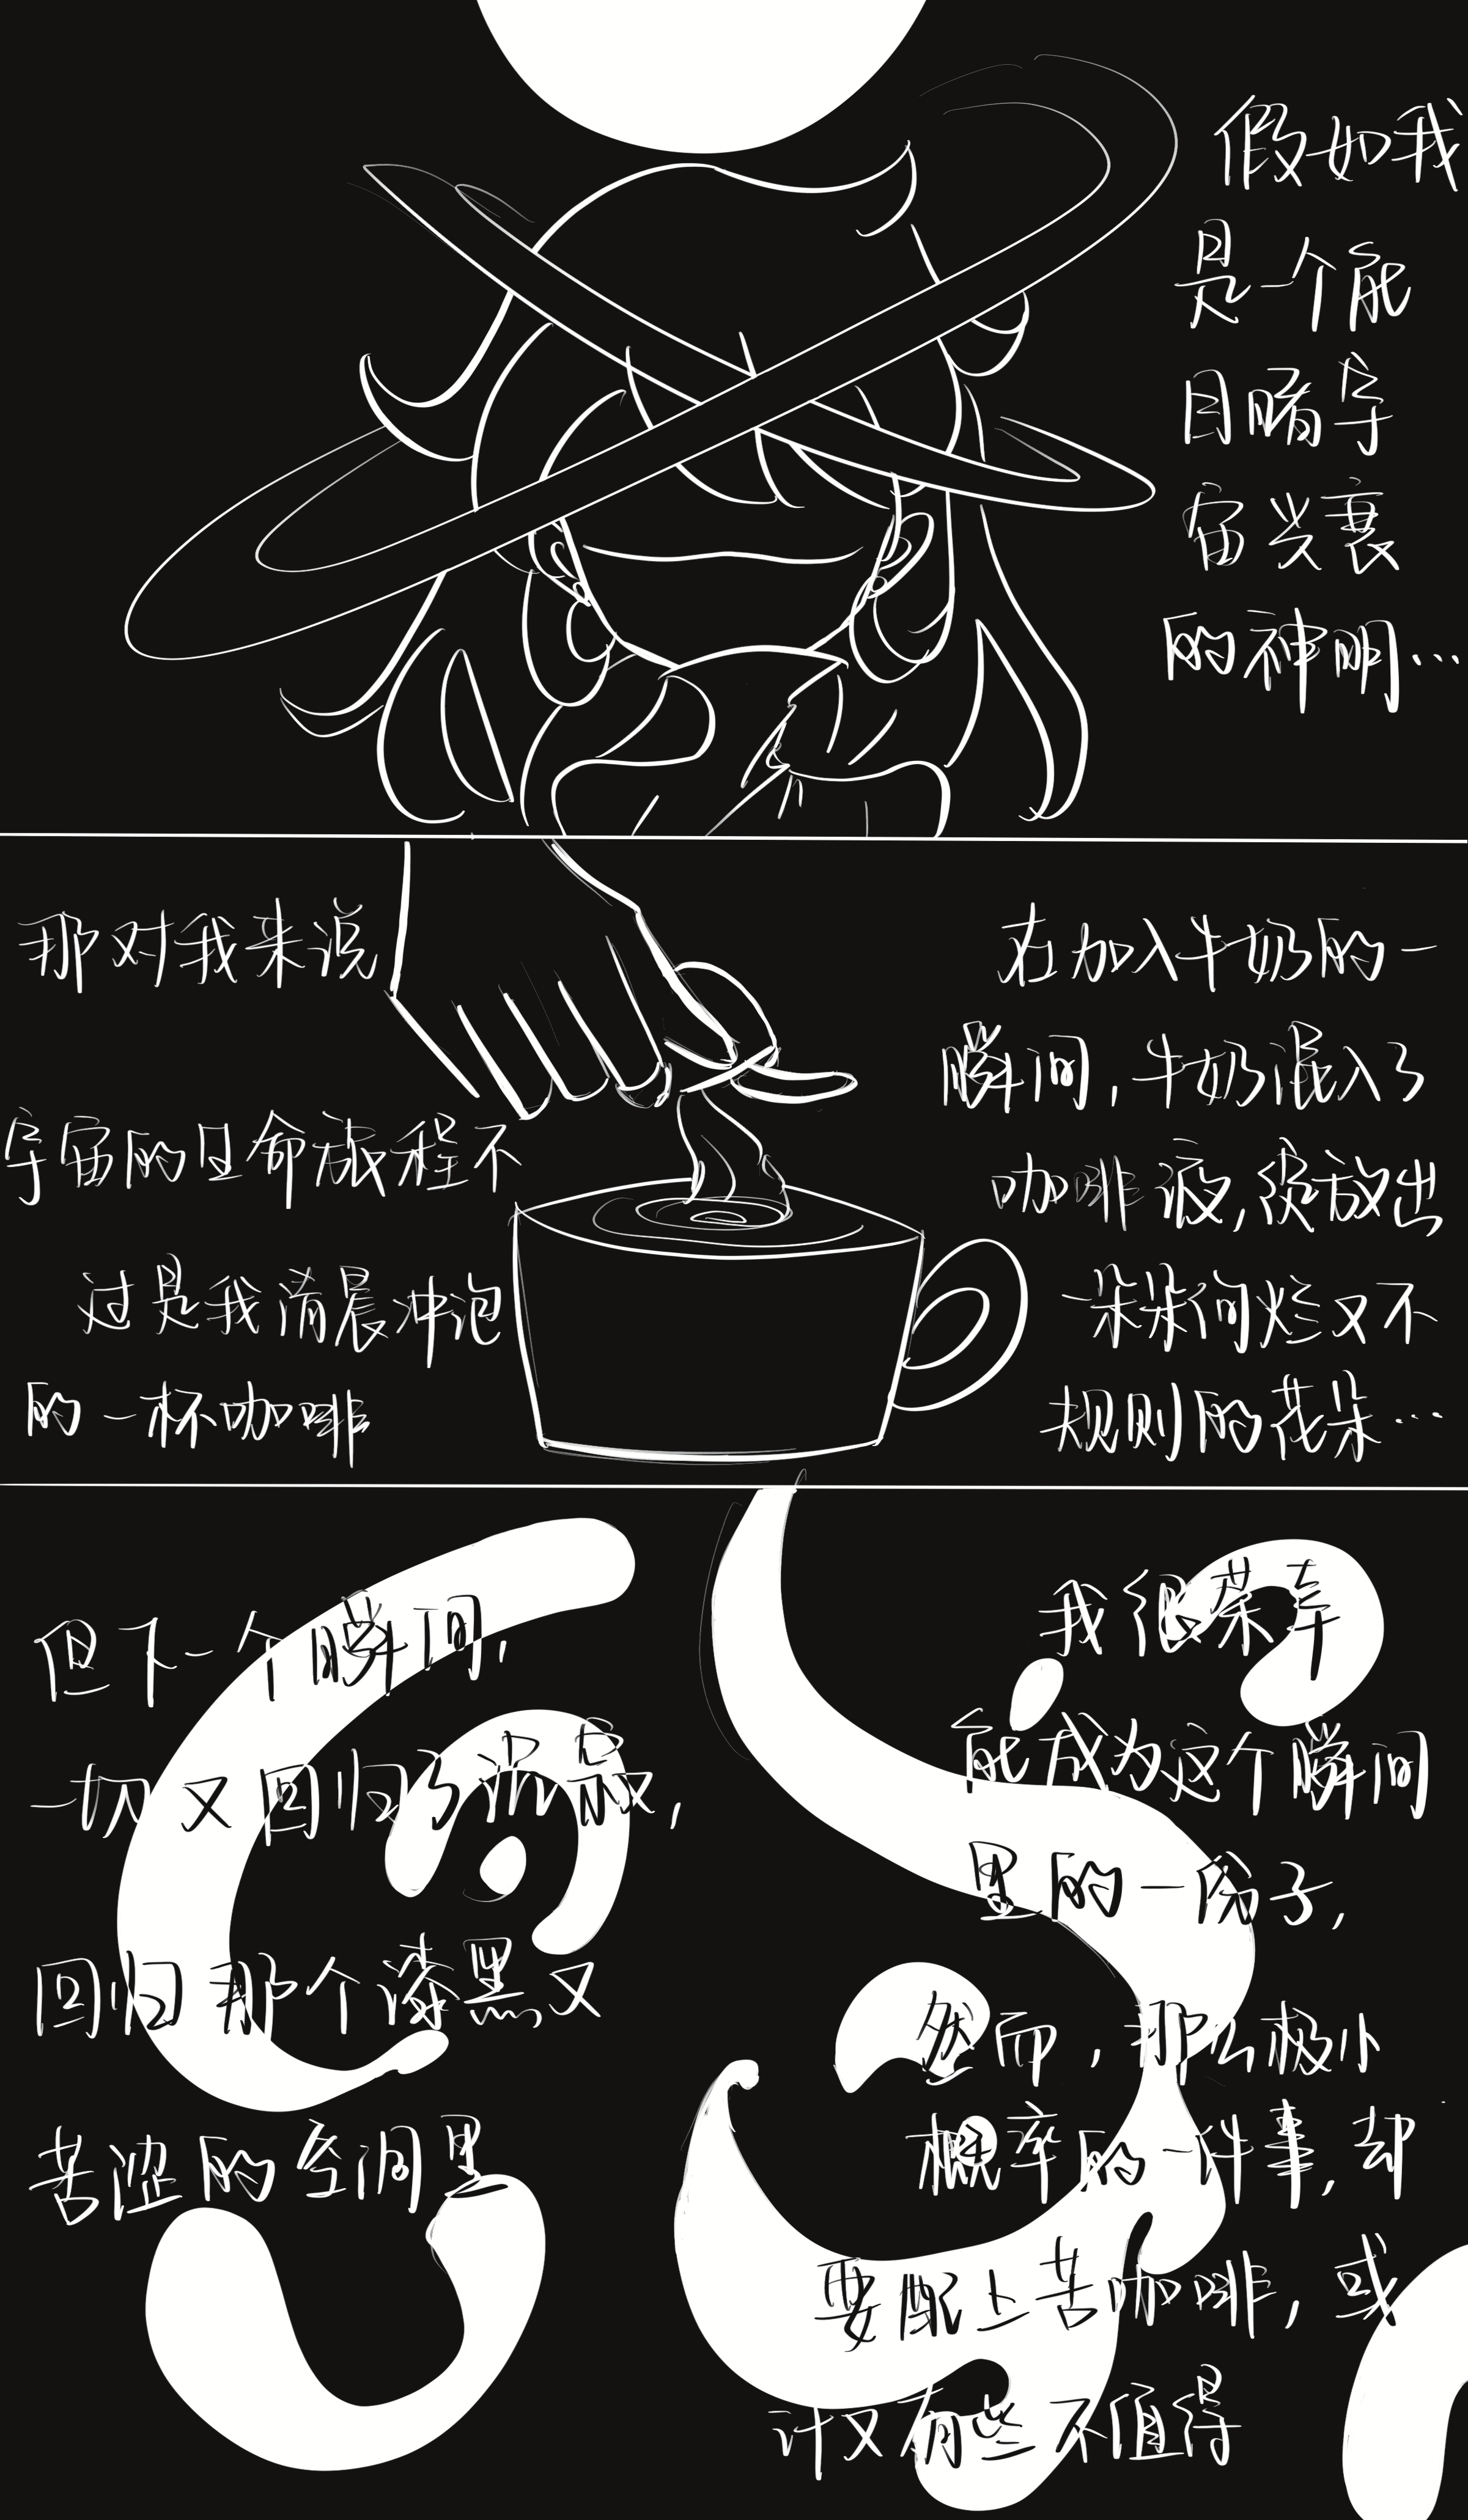 假如我
是一个能
目睹宇
宙兴衰
的神明...
那对我来说
宇宙的 程不
过是我清晨冲泡
的一杯咖啡
在加入牛奶的一
瞬间,牛奶混入了
咖啡液,绽放出
一 烂又不
规则的花朵...
但下一个瞬间,
一切又回归了沉寂,
回归那个漆黑又
苦涩的空间里
我很荣幸
能成为这个瞬间
里的一份子,
然而,那么极小
概率的一件事,却
要配上苦咖啡,或
许又有些不值得